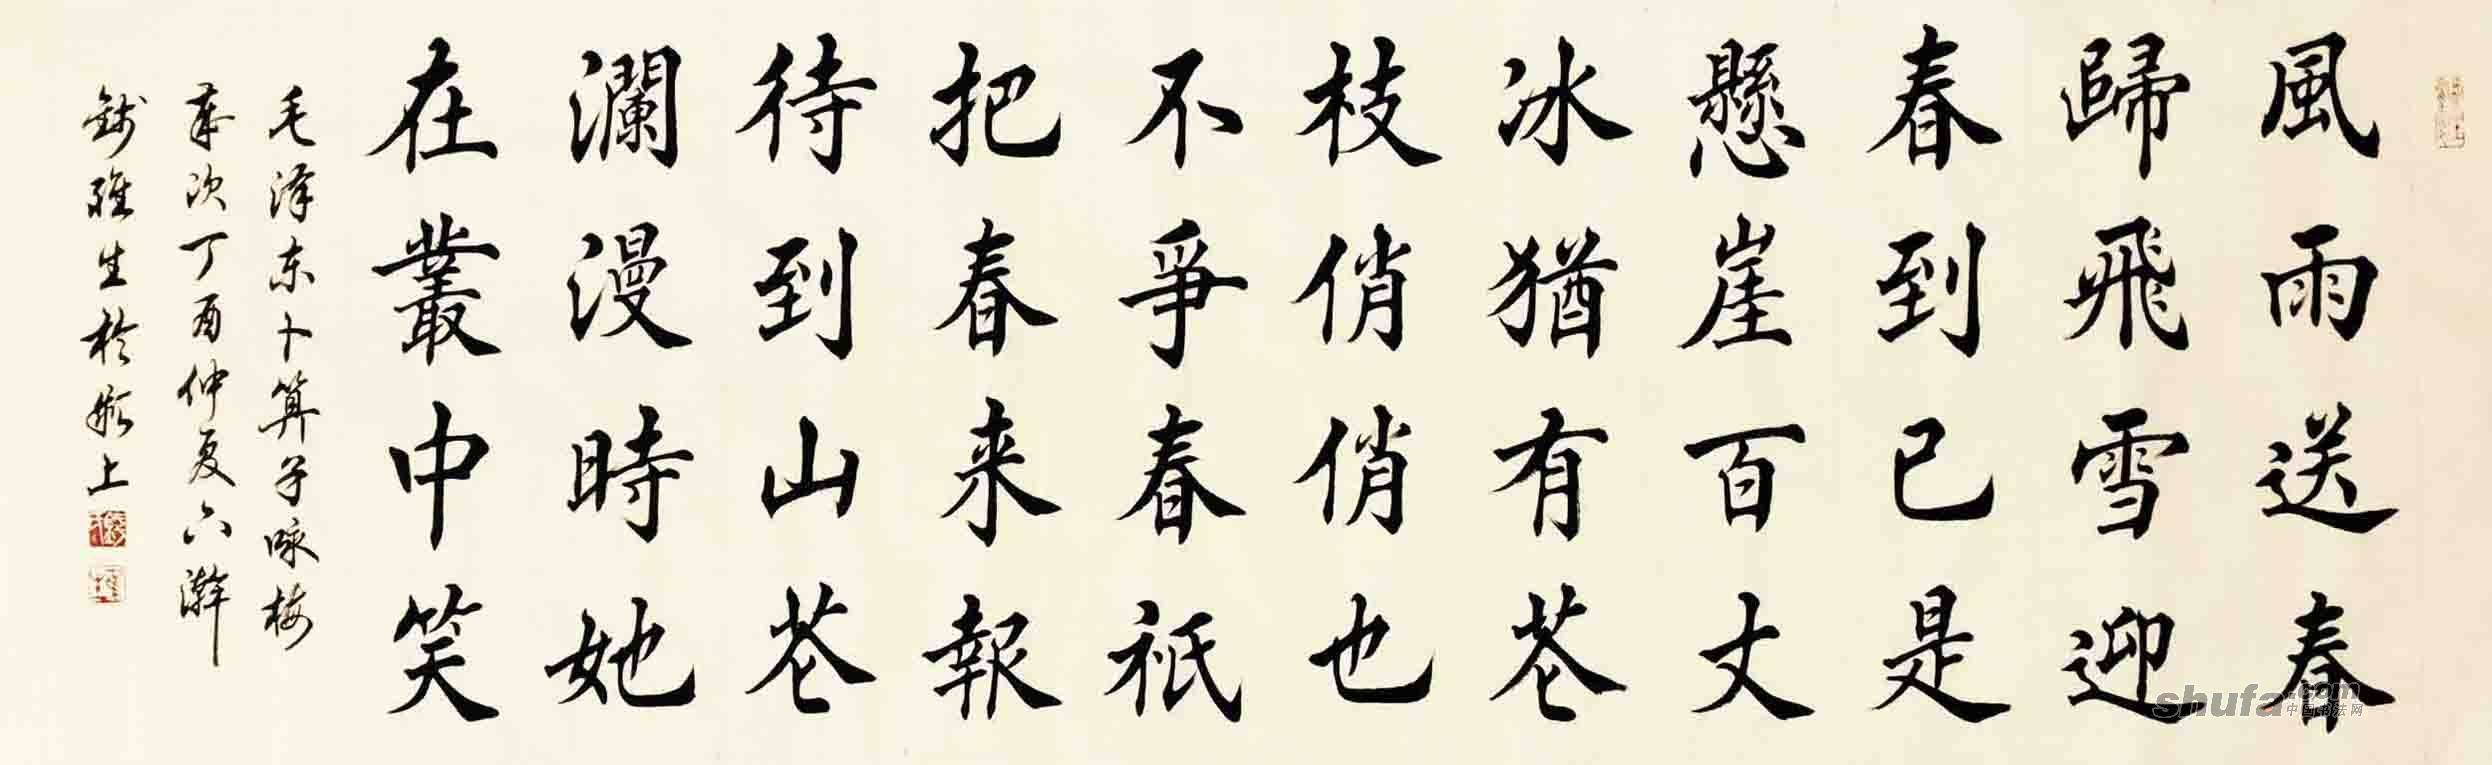 風雨送春
歸飛雪迎
春到已是
懸崖百丈
冰猶有花
枝俏俏也
不爭春祇
把春来報
待到山花
瀾漫時她
在叢中笑
毛泽东卜算子咏梅
歲次丁酉仲夏六澣
錢雅生於上
shufa.com
中国书法网